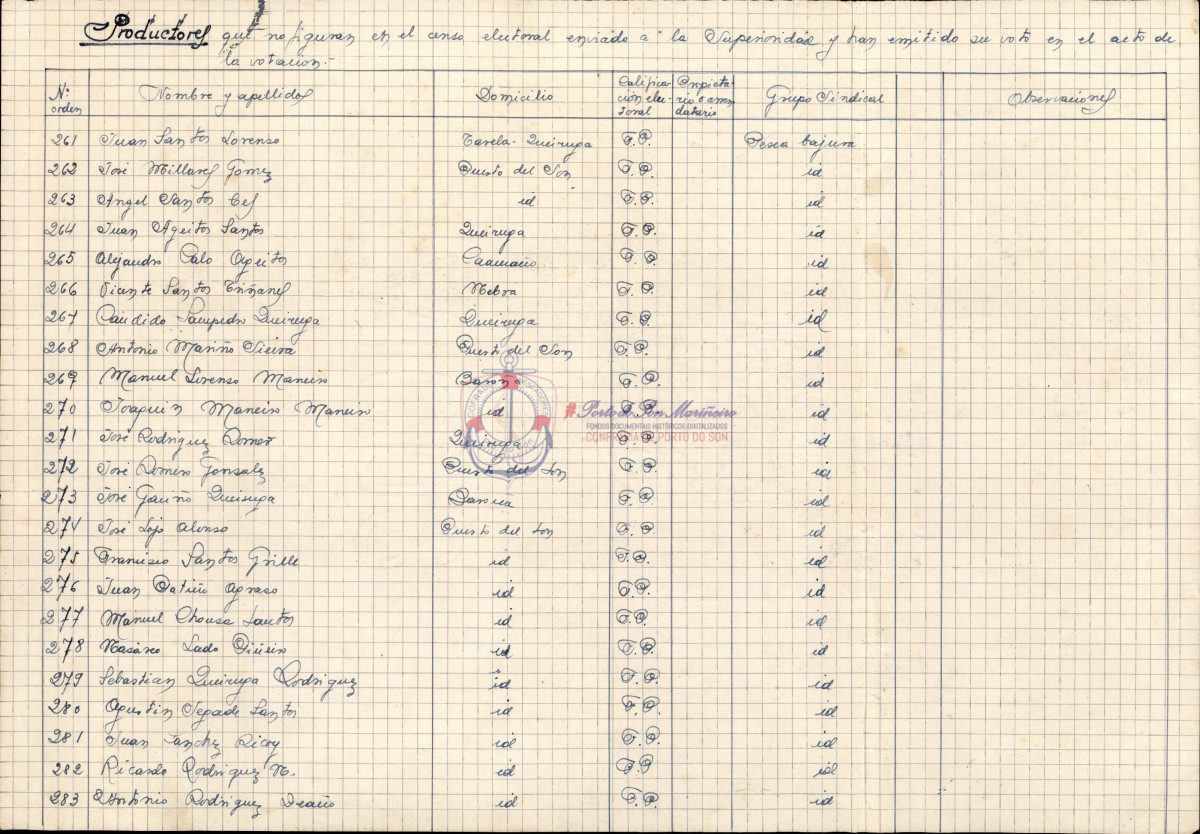 Productores que no figuran en el censo electoral enviado a la Superioridad y han emitido su voto en el acto de
la votacion.-
Nº orden Nombre y apellidos Domicilio Calificación electoral Propietario o arrendatario Grupo Sindical Observaciones
261 Juan Santos Lorenso Queiruga T.P. Pesca bajura
262 José Millares Gomez Puerto del Son T.P. id
263 Angel Santos id T.P. id
264 Juan Ageitos Santos Queiruga T.P. id
265 Alejandro Calo Ageitos Caamaño T.P. id
266 Vicente Santos Triñanes Nebra T.P. id
267 Candido Sampedro Queiruga Queiruga T.P. id
268 Antonio Mariño Sieira Puerto del Son T.P. id
269 Manuel Lorenso Maneiro Barona T.P. id
270 Joaquin Maneiro Maneiro id T.P. id
271 José Rodriguez Romero Queiruga T.P. id
272 José Romero Gonzalez Puerto del Son T.P. id
273 José Queiruga T.P. id
274 José Lojo Alonso Puerto del Son T.P. id
275 Francisco Santos Grille id T.P. id
276 Juan Patiño Agraso id T.P. id
277 Manuel Chousa Santos id T.P. id
278 Lado Piñeiro id T.P. id
279 Sebastian Queiruga Rodriguez id T.P. id
280 Agustin Segade Santos id T.P. id
281 Juan Sanchez Ricoy id T.P. id
282 Ricardo Rodriguez N. id T.P. id
283 Antonio Rodriguez id T.P. id
#Porto do Son Mariñeiro
FONDOS DOCUMENTAIS HISTÓRICOS DIXITALIZADOS
CONFRARÍA DE PORTO DO SON